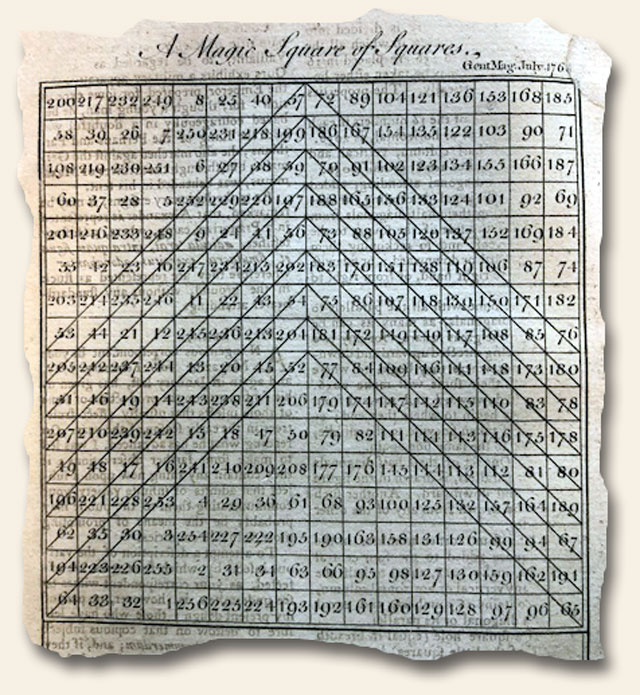 A Magic Square of Squares.
Gent Mag. July. 176
200 217 232 249 8 25 40 57 72 89 104 121 136 153 168 185
58 39 26 7 250 231 218 199 186 167 154 135 122 103 90 71
198 219 230 251 6 27 38 59 70 91 102 123 134 155 166 187
60 37 28 5 252 229 220 197 188 165 156 133 124 101 92 69
201 216 233 248 9 24 41 56 73 88 105 120 137 152 169 184
55 42 23 10 247 234 215 202 183 170 151 138 119 106 87 74
203 214 235 246 11 22 43 54 75 86 107 118 139 150 171 182
53 44 21 12 245 236 213 204 181 172 149 140 117 108 85 76
205 212 237 244 13 20 45 52 77 84 109 116 141 148 173 180
51 46 19 14 243 238 211 206 179 174 147 142 115 110 83 78
207 210 239 242 15 18 47 50 79 82 111 114 143 146 175 178
49 48 17 16 241 240 209 208 177 176 145 144 113 112 81 80
196 221 228 253 4 29 36 61 68 93 100 125 132 157 164 189
62 35 30 3 254 227 222 195 190 163 158 131 126 99 94 67
194 223 226 255 2 31 34 63 66 95 98 127 130 159 162 191
64 33 32 1 256 225 224 193 192 161 160 129 128 97 96 65